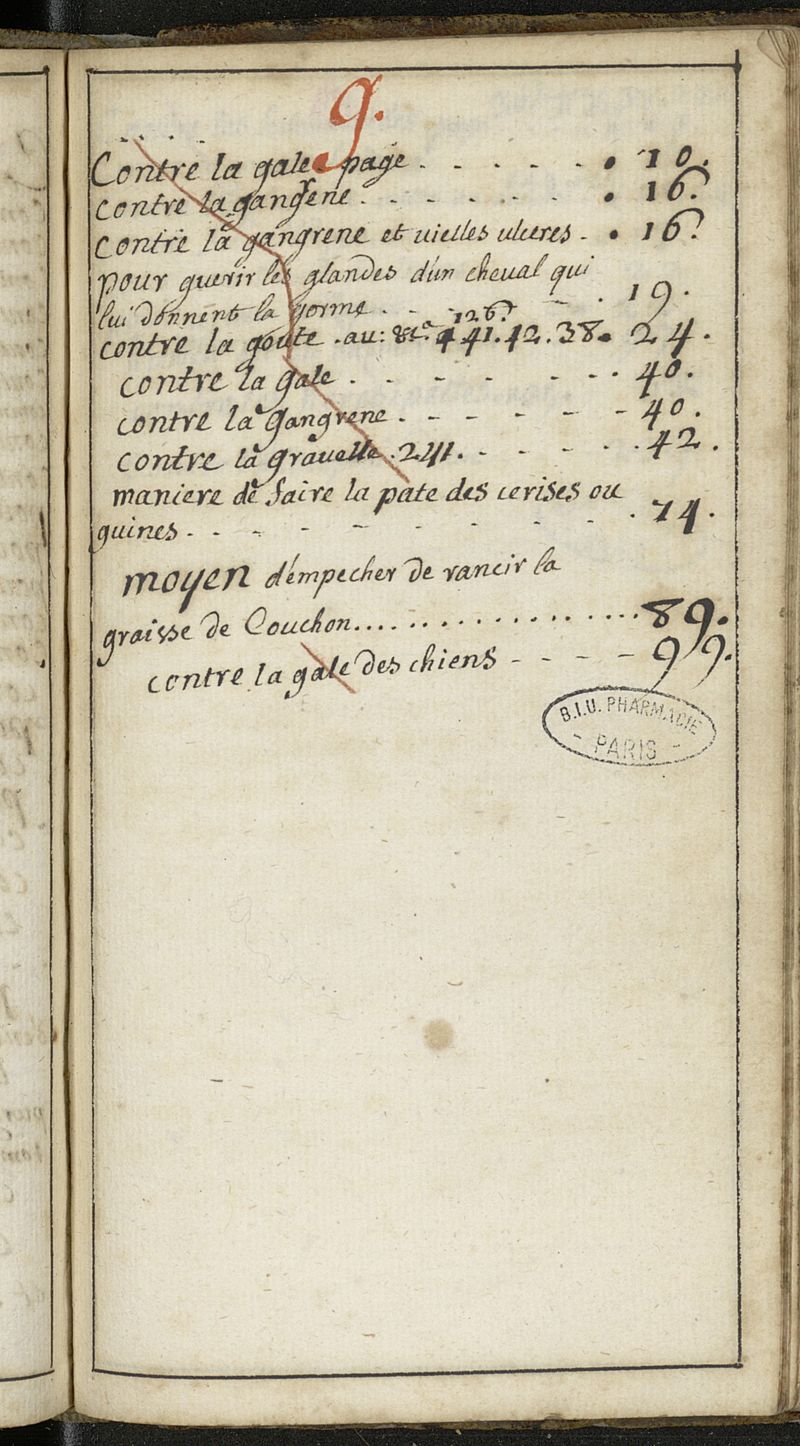 g.
Contre la gale page - - - - - . 10.
contre la gangrene - - - - - - . 16.
contre la gangrene et uielles ulceres - . 16.
pour guerir les glandes d'un cheval qui
lui donnent la gorme - - - - . 19.
126
contre la goute . au: 441.42.38. 24.
contre la gale . - - - - - - . 40.
contre la gangrene . - - - - - - 40.
contre la grauelle . 241. - - - - . . 42.
maniere de faire la pate des cerises ou
guines - - - - - - - - - . 74.
moyen d'empecher de rancir la
graisse de Couchon.................. 89.
contre la gale des chiens - - - - 99.
B.I.U. PHARMACIE
- PARIS -